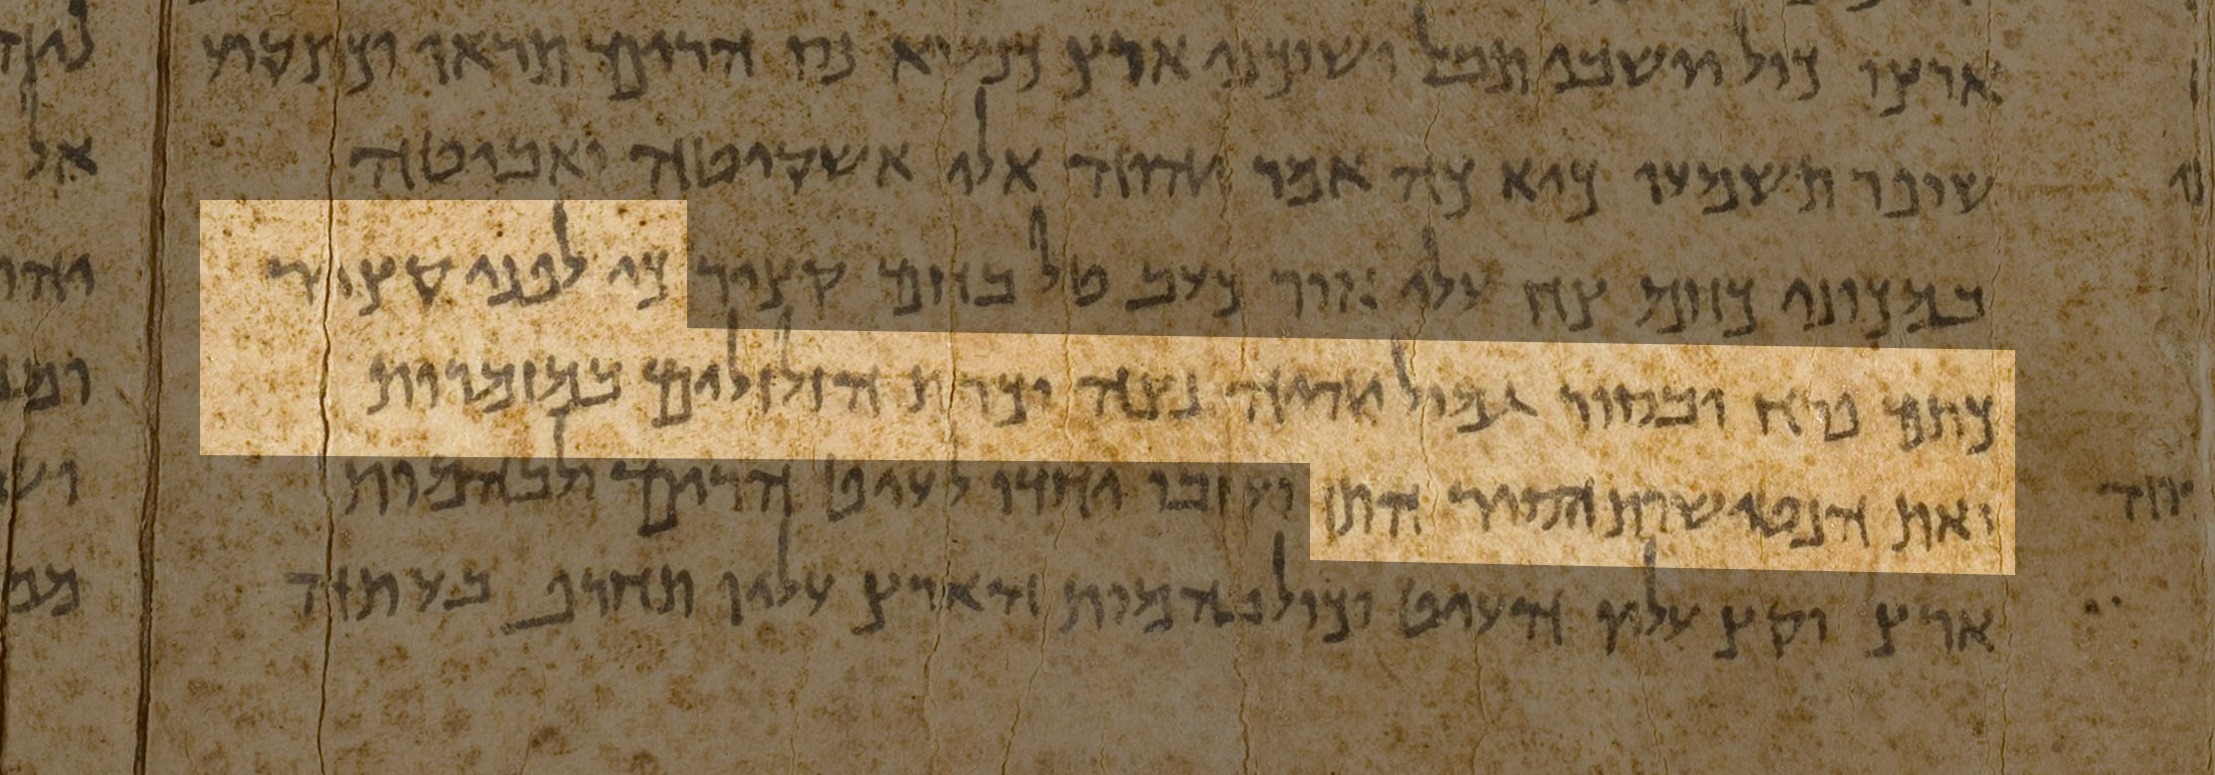 ארצו כול יושבי תבל ושוכני ארץ כנשוא נס הרים תראו וכתקוע
שופר תשמעו כיא כה אמר יהוה אלי אשקוטה ואביטה
במכוני כחום צח עלי אור כעב טל בחום קציר כי לפני קציר
כתם פרח ובסור גמול יהיה נצה וכרת הזלזלים במזמרות
ואת הנטישות הסיר התז ועזבו יחדו לעיט הרים ולבהמות
ארץ וקץ עליו העיט וכול בהמות הארץ עליו תחרף